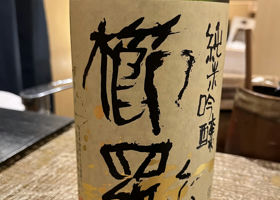 純米吟醸
櫛羅